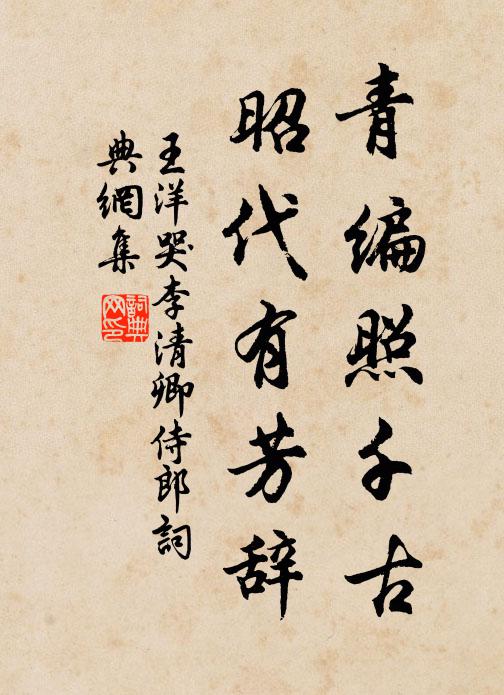 青编照千古
昭代有芳辞
王洋哭李清卿侍郎詞
典網集
詞典网印